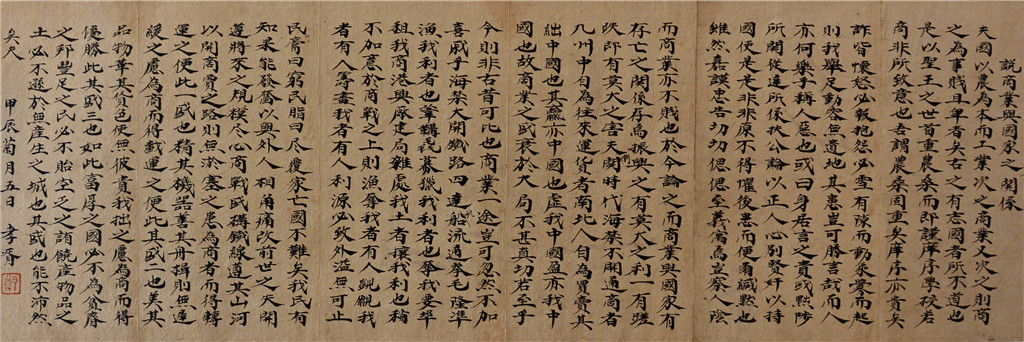 說商業與國家之關係
夫國以農為本而工業次之商業又次之則商
之為事賤且卑者矣古之有志國者所不道也
是以聖王之世首重農桑而即謹庠序學校若
商非所致意也吾謂農桑固重矣庠序亦貴矣
而商業亦不賤也於今論之而商業與國家有
存亡之關係存焉振興之有莫大之利一有蹉
跌即有莫大之害天開時代海禁不開通商者
九州中自為往來運貨者南北人自為買賣其
絀中國也其贏亦中國也虛我中國盈亦我中
國也故商業之盛衰於大局不甚真切若至乎
今則非古昔可比也商業一途豈可忽然不加
喜戚乎海禁大開鐵路四達船流通拳毛隆準
漁我利者也篳韝毳幕獵我利者也
租我商港興廠建局難處我土者攘我利也稍
不加意於商戰之上則漁奪我者有人覬覦我
者有人籌畫我者有人利源必致外溢無可止
民膏曰窮民脂曰盡覆家亡國不難矣我民有
知果能發奮以與外人相角痛改前世之天開
遵將來之規模尽心商戰或礴鐵線道其山河
以開商賈之路則無淤塞之患為商者而得轉
運之便此一盛也精其機器善其舟楫則無遲
緩之慮為商而得載運之便此其盛二也美其
品物華其貨色使無彼貴我拙之慮為商而得
優勝此其盛三也如此富厚之國必不為貧脊
之邦豐足之民必不貽空乏之誚饒產物品之
土必不遜於無產生之城也其盛也能不沛然
矣夫
甲辰菊月五日
詐窘懷怒必報抱怨必雪有陳而動乘釁而起
則我舉足動輒無道地其患豈可勝言哉而人
亦何樂乎稱人惡也或曰身居言之責或黜陟
所關從違所係扶公論以正人心別賢奸以持
國便是是非非原不得懼後患而便爾緘默也
雖然嘉謨忠告切切偲偲至義藹焉豈察人陰